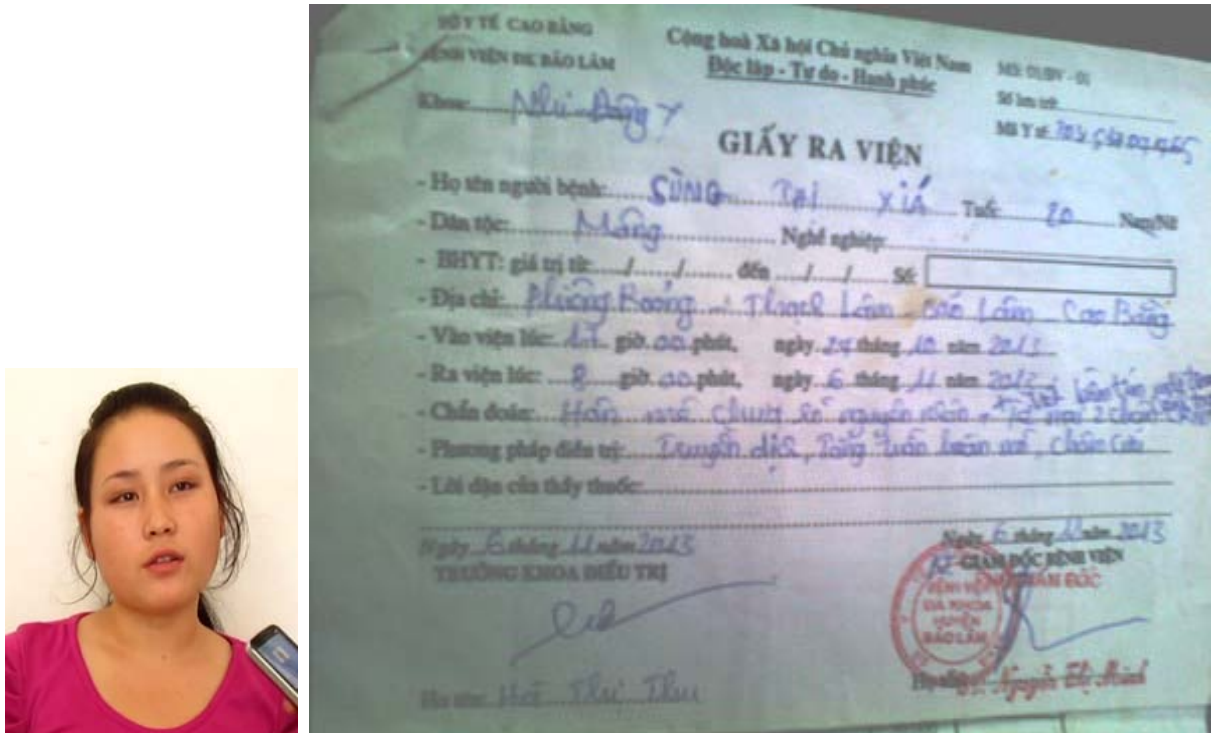 SỞ Y TẾ CAO BẰNG
BỆNH VIỆN ĐK BẢO LÂM
Cộng hoà Xã hội Chủ nghĩa Việt Nam
Độc lập - Tự do - Hạnh phúc
MS: 01/BV - 01
Số lưu trữ
Mã Y tế
Khoa: Nhi - Đông Y
GIẤY RA VIỆN
- Họ tên người bệnh: SÙNG THỊ XIÁ Tuổi: 20 Nam/Nữ
- Dân tộc: Mông Nghề nghiệp:
- BHYT: giá trị từ: / / đến / / Số:
- Địa chỉ: Thạch Lâm - Bảo Lâm - Cao Bằng
- Vào viện lúc: giờ 00 phút, ngày 24 tháng 10 năm 2013
- Ra viện lúc: 8 giờ 00 phút, ngày 6 tháng 11 năm 2013
- Chẩn đoán: Hôn mê chưa rõ nguyên nhân
- Phương pháp điều trị: Truyền dịch, Tăng tuần hoàn, châm cứu
- Lời dặn của thầy thuốc:
Ngày 6 tháng 11 năm 2013
TRƯỞNG KHOA ĐIỀU TRỊ
Ngày 6 tháng 11 năm 2013
GIÁM ĐỐC BỆNH VIỆN
BỆNH VIỆN
ĐA KHOA
HUYỆN
BẢO LÂM
Họ tên: Thị Thu
Họ tên: Nguyễn Thị Minh